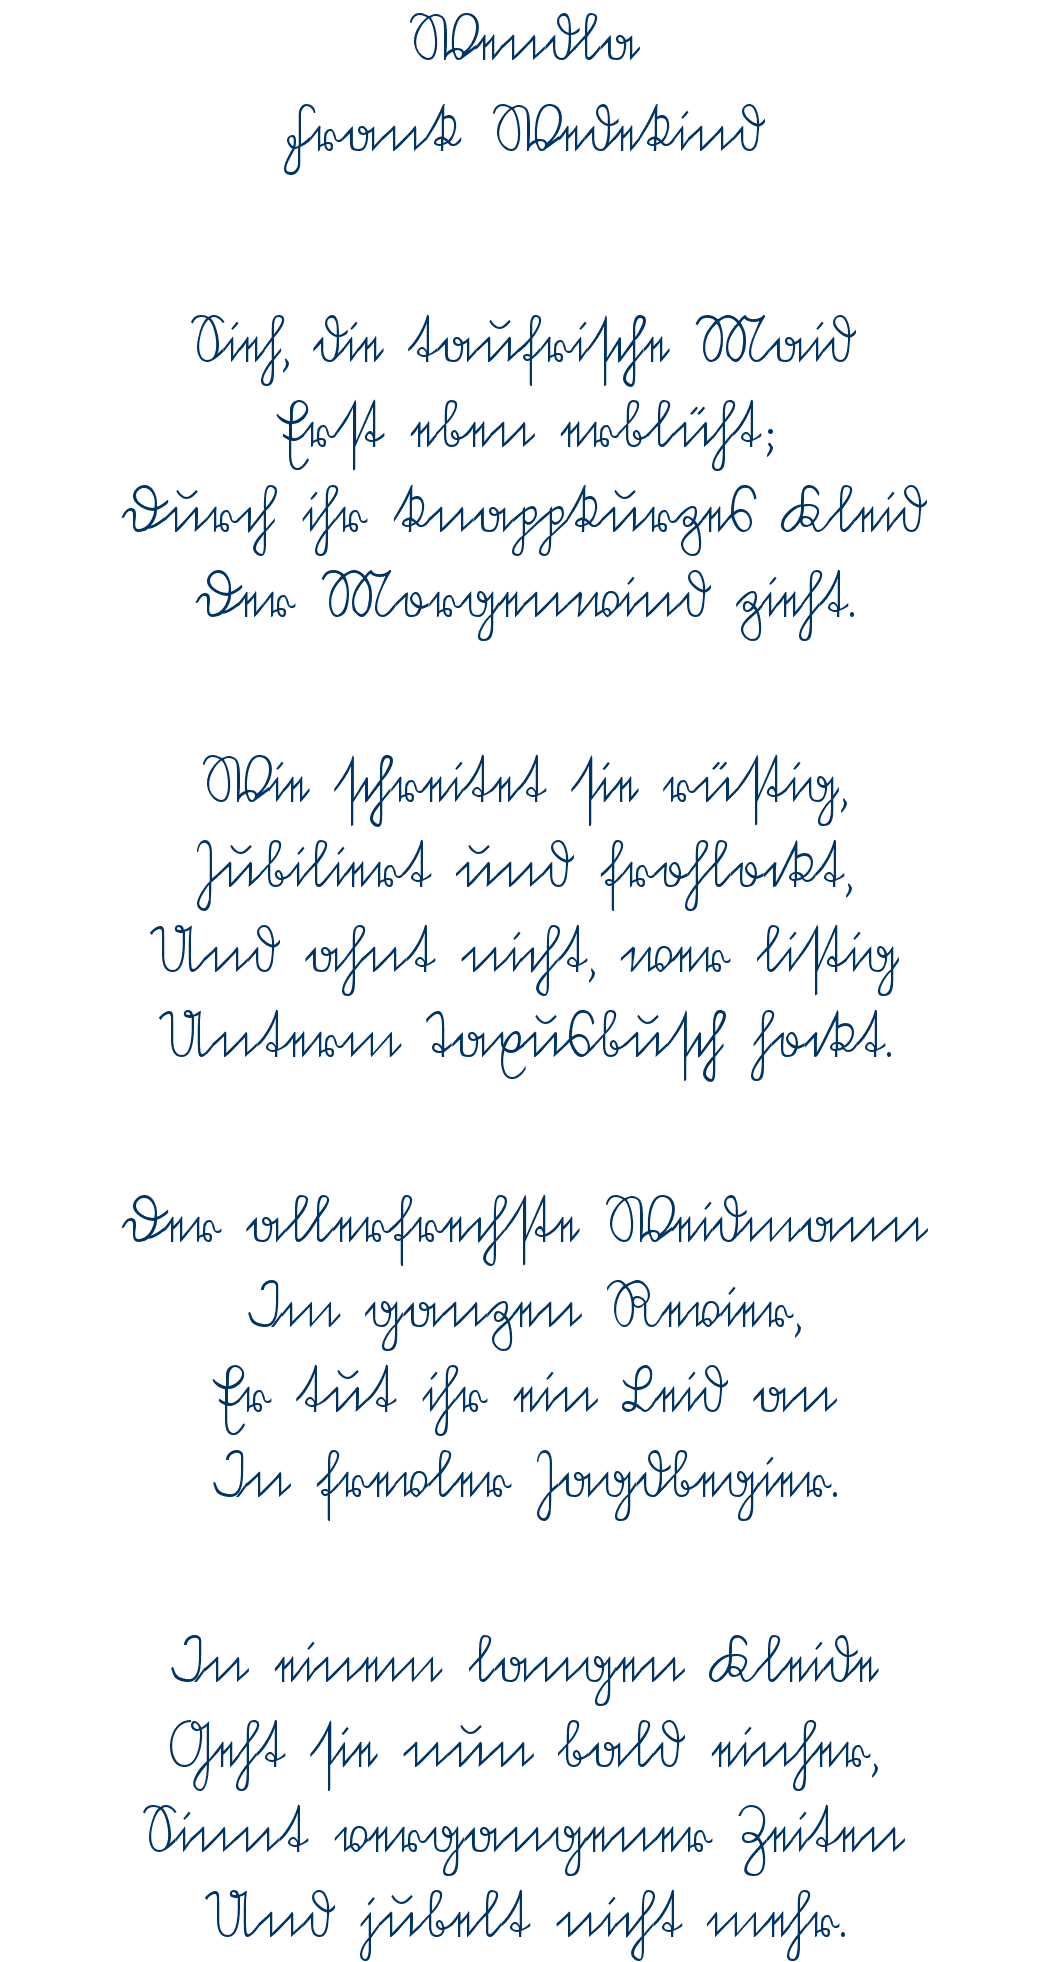 Wendla
Frank Wedekind
Sieh, die taufrische Maid
Erst eben erblüht;
Durch ihr knappkurzes Kleid
Der Morgenwind zieht.
Wie schreitet sie rüstig,
Jubiliert und frohlockt,
Und ahnt nicht, wer listig
Unterm Taxusbusch hockt.
Der allerfrechste Weidmann
Im ganzen Revier,
Er tut ihr ein Leid an
In frevler Jagdbegier.
In einem langen Kleide
Geht sie nun bald einher,
Sinnt vergangener Zeiten
Und jubelt nicht mehr.